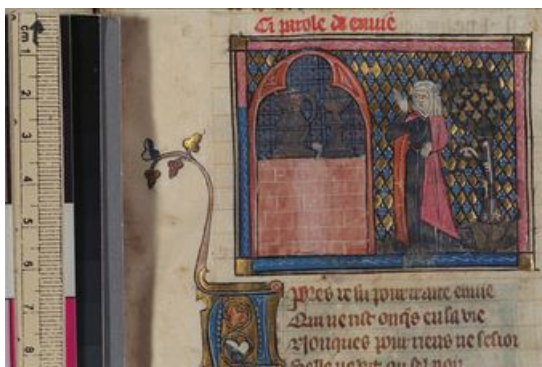 cm
1
2
3
4
5
6
7
8
Ci parole de enuie
Apres refu pourtraite enuie
Qui ne rist onqs en sa vie
Nonques pour riens ne sesioi
Selle ne vit ou